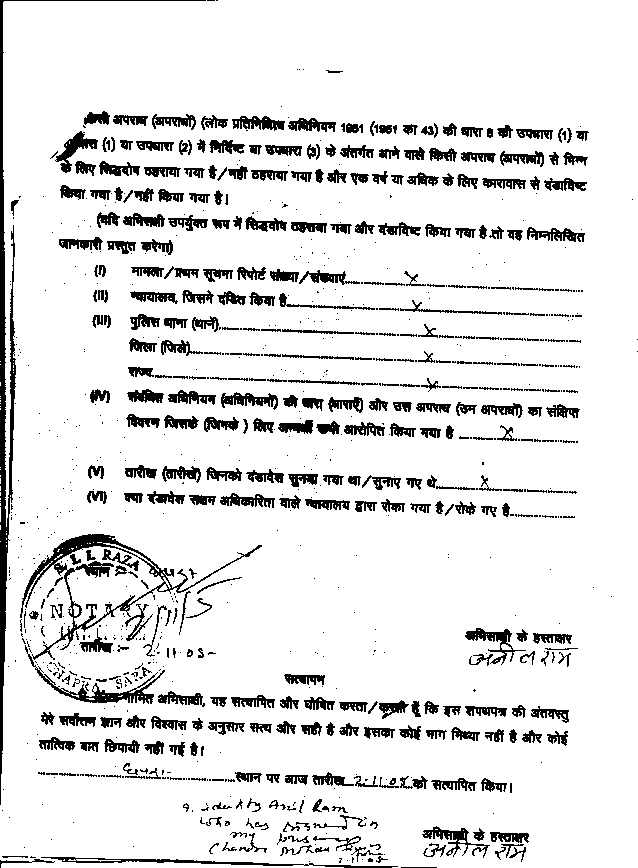 किसी अपराध (अपराधों) (लोक प्रतिनिधित्व अधिनियम 1951 (1951 का 43) की धारा 8 की उपधारा (1) या
(1) या उपधारा (2) में निर्दिष्ट या उपधारा (3) के अंतर्गत आने वाले किसी अपराध (अपराधों) से भिन्न
के लिए सिद्धदोष ठहराया गया है/नहीं ठहराया गया है और एक वर्ष या अधिक के लिए कारावास से दंडादिष्ट
किया गया है/नहीं किया गया है।
(यदि अभिसाक्षी उपर्युक्त रूप में सिद्धदोष ठहराया गया और दंडादिष्ट किया गया है तो वह निम्नलिखित
जानकारी प्रस्तुत करेगा)
(I) मामला/प्रथम सूचना रिपोर्ट संख्या/संख्याएं.......... X
(II) न्यायालय, जिसने दंडित किया है.......... X
(III) पुलिस थाना (थानें).......... X
जिला (जिले).......... X
राज्य.......... X
(IV) संबंधित अधिनियम (अधिनियमों) की धारा (धाराएँ) और उस अपराध (उन अपराधों) का संक्षिप्त
विवरण जिसके (जिनके) लिए आरोपित किया गया है .......... X
(V) तारीख (तारीखें) जिनको दंडादेश सुनाया गया था/सुनाए गए थे.......... X
(VI) क्या दंडादेश सक्षम अधिकारिता वाले न्यायालय द्वारा रोका गया है/रोके गए है..........
RAZA
स्थान :-
NOTARY
तारीख :- 2-11-05-
CHAPRA, SARA
अभिसाक्षी के हस्ताक्षर
अनील राम
सत्यापन
नामित अभिसाक्षी, यह सत्यापित और घोषित करता/करती हूँ कि इस शपथपत्र की अंतवस्तु
मेरे सर्वोत्तम ज्ञान और विश्वास के अनुसार सत्य और सही है और इसका कोई भाग मिथ्या नहीं है और कोई
तात्विक बात छिपायी नहीं गई है।
..........स्थान पर आज तारीख 2-11-05 को सत्यापित किया।
Anil Ram
who has signed in
my
अभिसाक्षी के हस्ताक्षर
2-11-05
अनील राम